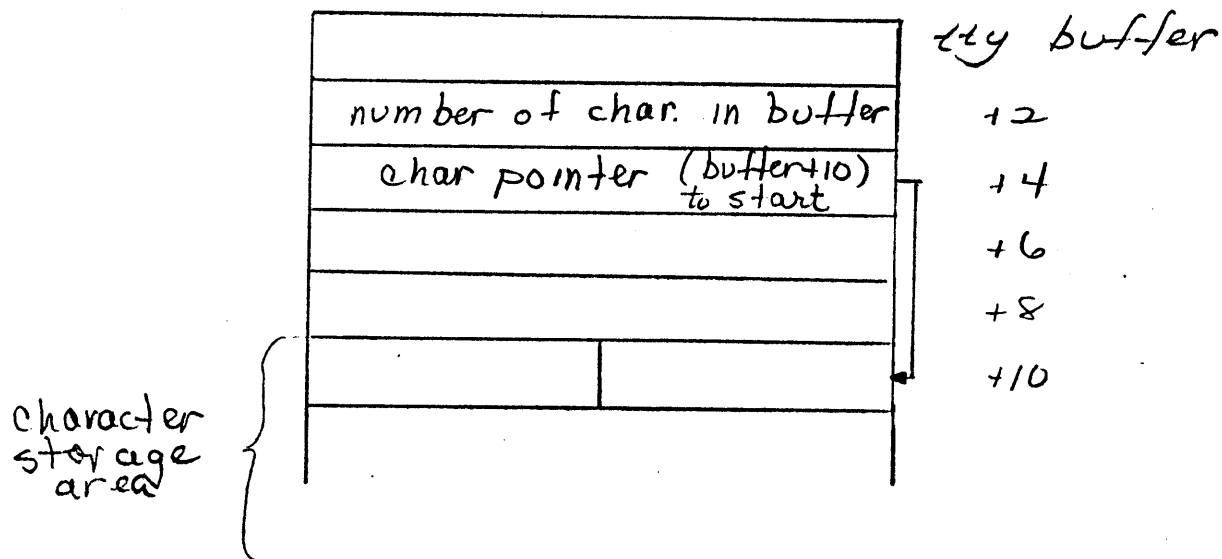 tty buffer
number of char. in buffer +2
char pointer (buffer+10) +4
to start
+6
+8
+10
character
storage
area